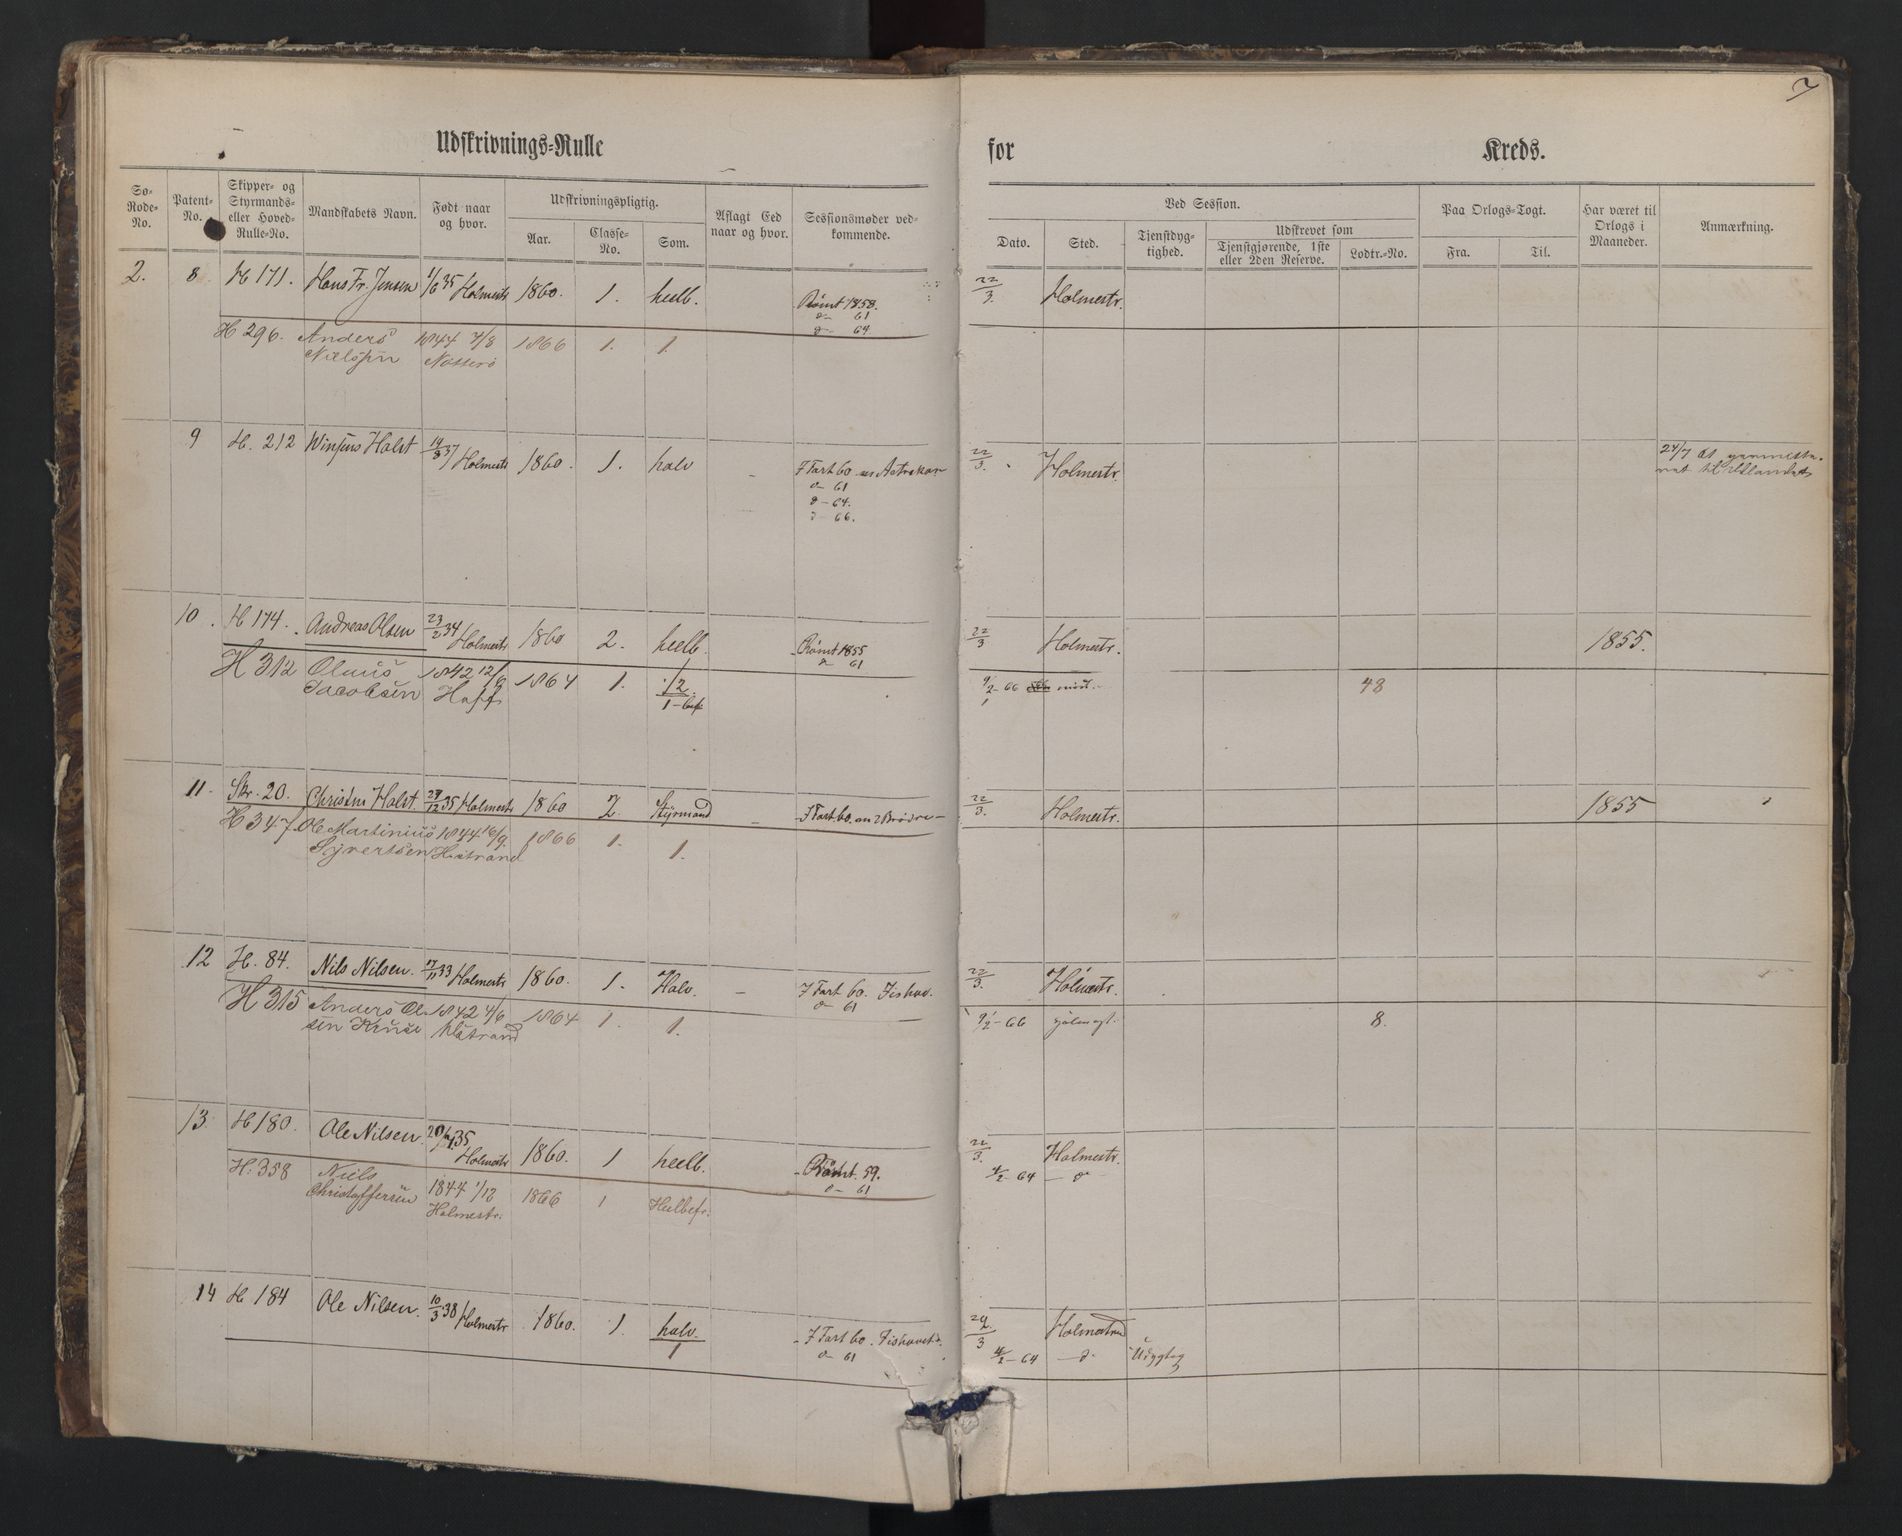 7
Udskrivnings-Rulle for Kreds.
Sø-Rode-No.
Patent-No.
Skipper- og Styrmands- eller Hoved-Rulle-No.
Mandskabets Navn.
Født naar og hvor.
Udskrivningspligtig.
Aar.
Classe-No.
Som.
Aflagt Eed naar og hvor.
Sessionsmøder vedkommende.
Ved Session.
Dato.
Sted.
Tjenstdygtighed.
Udskrevet som
Tjenstgjørende, 1ste eller 2den Reserve.
Lodtr.-No.
Paa Orlogs-Togt.
Fra.
Til.
Har været til Orlogs i Maaneder.
Anmærkning.
2. 8 H 171. Hans Fr. Jensen 1/6 35 Holmestr 1860. 1. heelb. Rømt 1858. 22/3. Holmestr.
d- 61
d- 64
H 296. Anders 1844 7/8 1866 1. 1.
Nielsen Nøtterø
9 H. 212 Halst 14/8 37 Holmestr 1860. 1. halv - I Fart 60 22/3. Holmestr. 24/7
d- 61 til Udlandet
d- 64.
d- 66.
10. H 174. Andreas Olsen 23/2 34 Holmestr 1860 2. heelb. Rømt 1855 22/3 Holmestr. 1855.
d 61
H 312 Olaus 1842 12/6 1864 1. 1/2 9/2-66 48
Jacobsen 1
11. Skr. 20. Halst. 29/12 35 Holmestr 1860 2. Styrmand - I Fart 60. 22/3. Holmestr. 1855
H 347. Ole Martinius 1844 16/9. 1866 1. 1.
Syvertsen H.strand
12 H. 84. Nils Nilsen. 17/11 33 Holmestr 1860. 1. Halv. - I Fart 60. 22/3. Holmestr.
d- 61
H 315 Anders Ol- 1842 4/6 1864 1. 1. 9/2-66 8.
sen Kruse
13. H 180. Ole Nilsen. 35 Holmestr 1860. 1 heelb. - Rømt. 59. 22/3. Holmestr.
d- 61 4/2-64 - d
H. 358 Niels 1844 1/12 1866 1 Heelbefr.
Christoffersen Holmestr.
14 H 184 Ole Nilsen. 10/3 38 Holmestr 1860. 1. halv. - I Fart 60. 22/3 Holmestrand
1 d- 61 4/2-64 -d- Udygtig